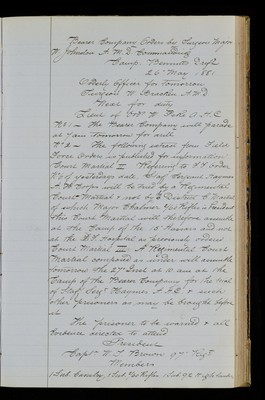 Bearer Company Orders by Surgeon Major
W. Johnston A.M.D. Commanding
Camp. Bennetts Drift
26th May 1881
Orderly Officer for tomorrow
Surgeon W. A.M.D
Next for duty
Lieut of Ord A.H.C
No 1 — The Bearer Company will parade
at 7 am tomorrow for drill
No 2 — The following extract from Field
Force Orders is published for information
Court Martial I Referring to F.F. Order
No 5 of yesterdays date Staff Sergeant Naymer
A.H. Corps will be tried by a Regimental
Court Martial & not by a District C. Martial
of which Major 3/60 Rifles is President
This Court Martial will therefore assemble
at the Camp of the 15th Hussars and not
at the B.H. Hospital as previously ordered
Court Martial II A Regimental Court
Martial composed as under will assemble
tomorrow the 27th Inst at 10 am at the
Camp of the Bearer Company for the trial
of Staff Sergt Naymer A.H.C & such
other prisoners as may be brought before
it
The prisoner to be warned & all
evidence directed to attend
President
Captn W. F. Brown 97th Regt
Members
1 Sub. 3/60 Rifles 1 Sub. 92 Highlanders